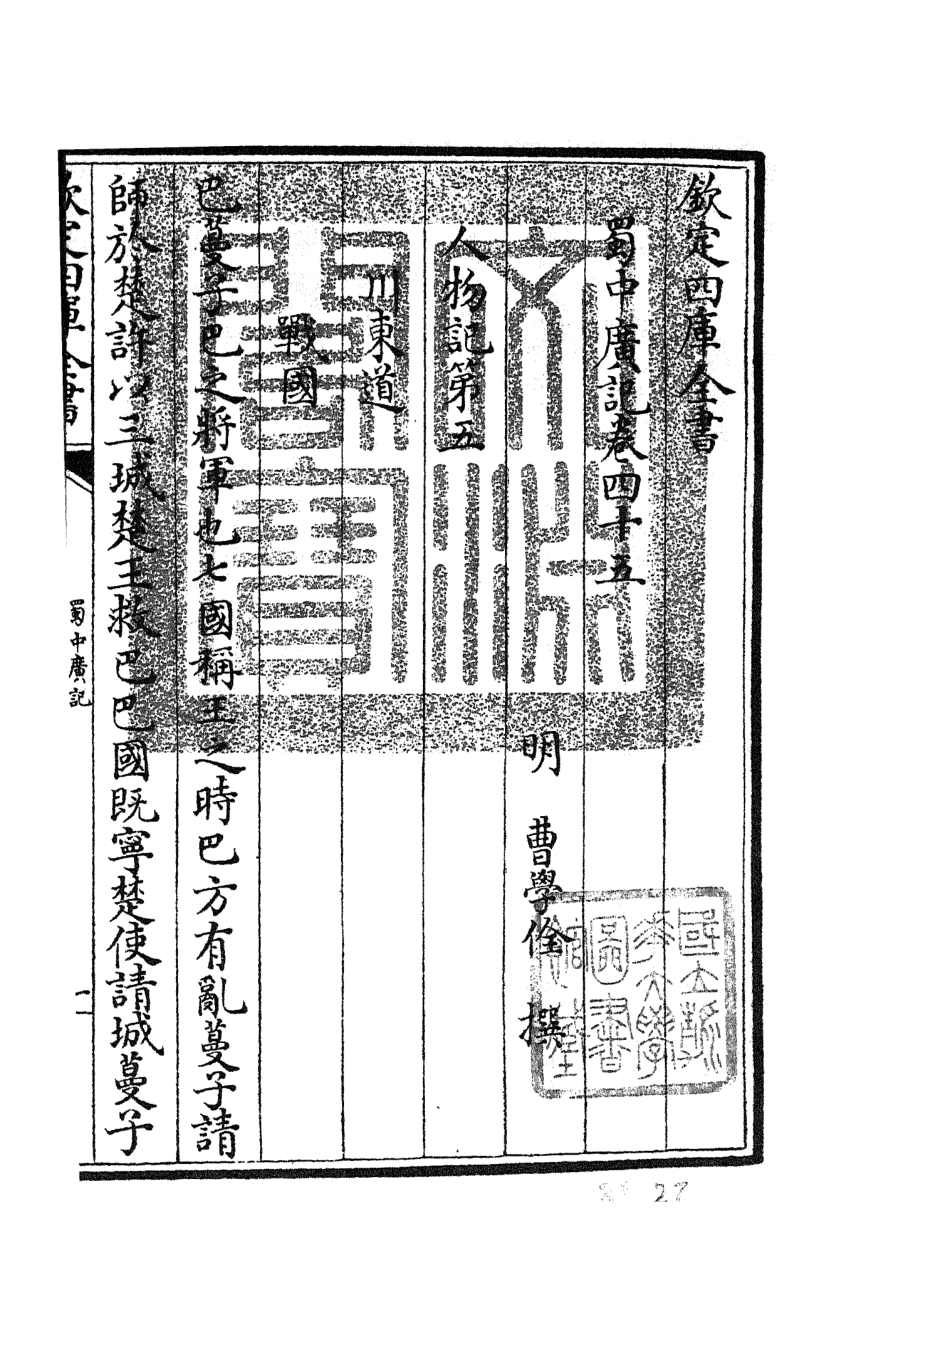 欽定四庫全書
蜀中廣記卷四十五
明 曹學佺 撰
人物記第五
川東道
戰國
巴蔓子巴之將軍也七國稱王之時巴方有亂蔓子請
師於楚許以三城楚王救巴巴國既寧楚使請城蔓子
欽定四庫全書
蜀中廣記
一
文淵閣寶
國立浙江大學圖書館藏
27